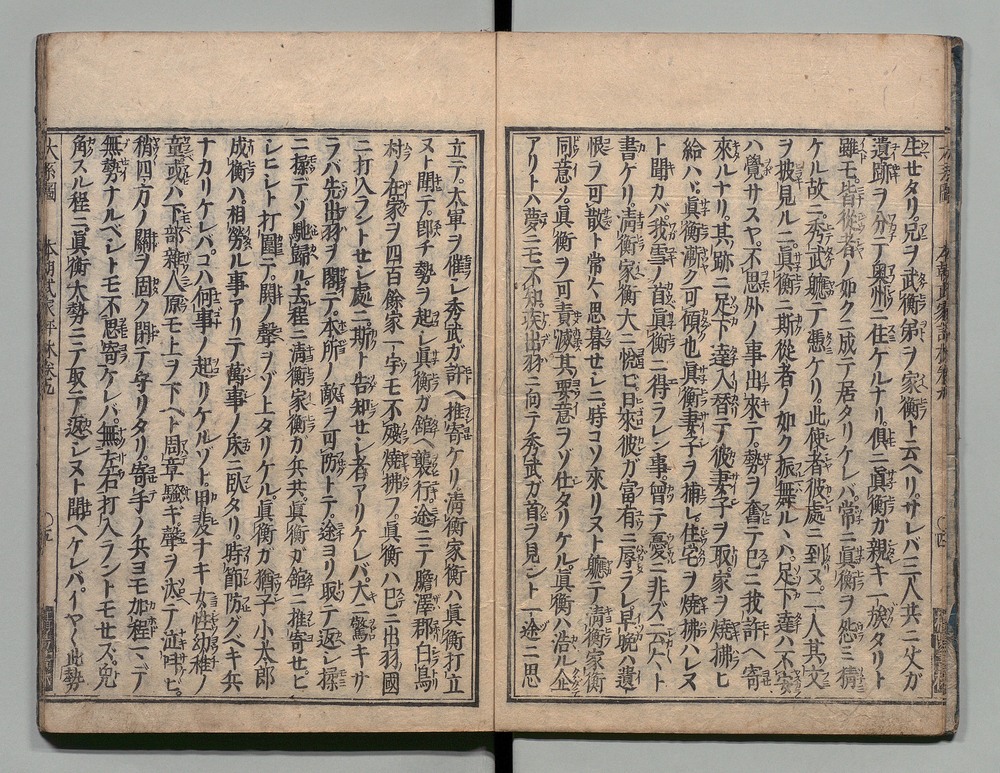 生セタリ。兄ヲ武衡弟ヲ家衡ト云ヘリ。サレバ二人共ニ父ガ
遺跡ヲ分テ奥州ニ住ケルナリ。俱ニ眞衡ガ親キ一族タリト
雖モ。皆從者ノ如クニ成テ居タリケレバ。常ニ眞衡ヲ怨ミ猜
ケル故ニ。秀武聽テ憑ケリ。此使者彼處ニ到ヌ。二人其文
ヲ披見ルニ。眞衡ニ斯從者ノ如ク振舞ルヽハ。足下達ハ不安
ハ覺サスヤ。不思外ノ事出來テ。勢ヲ奮テ已ニ我許ヘ寄
來ルナリ。其跡ニ足下達入替テ彼妻子ヲ取。家ヲ燒拂ヒ
給ハヾ。眞衡漸ク可傾也。眞衡妻子ヲ捕レ。住宅ヲ燒拂ハレヌ
ト聞カバ。我雪ノ首眞衡ニ得ラレン事。曾テ憂ニ非ズ。云々ト
書ケリ。清衡家衡大ニ悦ビ。日來彼ガ富有ニ辱ラレ。早晩ハ遺
恨ヲ可散ト常ハ思暮セシニ。時コソ來リヌト聽テ清衡家衡
同意ノ。眞衡ヲ可責滅其要意ヲゾ仕タリケル。眞衡ハ浩ル企
アリトハ夢ニモ不知。疾出羽ニ向テ秀武ガ首ヲ見ント一途ニ思
本朝武家評林卷九
〇四
立テ。大軍ヲ催シ秀武ガ許ヘ推寄ケリ。清衡家衡ハ眞衡打立
ヌト聞テ。即チ勢ヲ起シ眞衡ガ館ヘ襲行。途ニテ膽澤郡白鳥
村ノ在家ヲ四百餘家一宇モ不殘燒拂フ。眞衡ハ已ニ出羽國
ニ打入ラントセシ處ニ。斯ト告知セシ者アリケレバ。大ニ驚キ。サ
ラバ先出羽ヲ閣テ。本所ノ敵ヲ可防トテ。途ヨリ取テ返シ。揉
ニ揉デゾ馳歸ル。去程ニ清衡家衡ガ兵共。眞衡ガ館ニ推寄セヒ
シヒシト打圍テ。鬨ノ聲ヲゾ上タリケル。眞衡ガ猶子小太郎
成衡ハ。相勞ル事アリテ萬事ノ床ニ臥タリ。時節防グベキ兵
ナカリケレバ。コハ何事ノ起リケルゾト。甲斐ナキ女性幼稚ノ
童或ハ下部雜人原モ上ヲ下ヘト周章騷ギ。聲ヲ沈テ泣叫ビ。
稍四方ノ關ヲ固ク閉テ守リタリ。寄手ノ兵ヨモ加程マデ
無勢ナルベシトモ不思寄ケレバ。無左右打入ラントモセズ。兎
角スル程ニ。眞衡大勢ニテ取テ返シヌト聞ヘケレバ。イヤ〱此勢
大系圖
本朝武家評林卷九
〇五